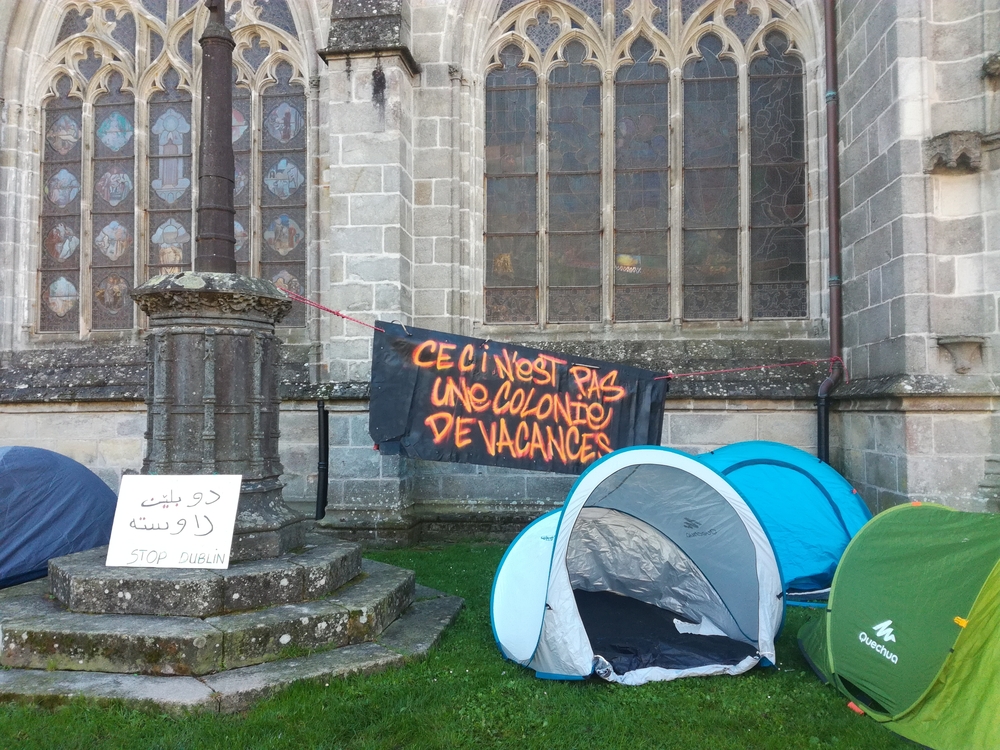 CECi N'EST PAS
UNE COLONIE
DE VACANCES
دوبلێن
ڕاوسته
STOP DUBLIN
Quechua